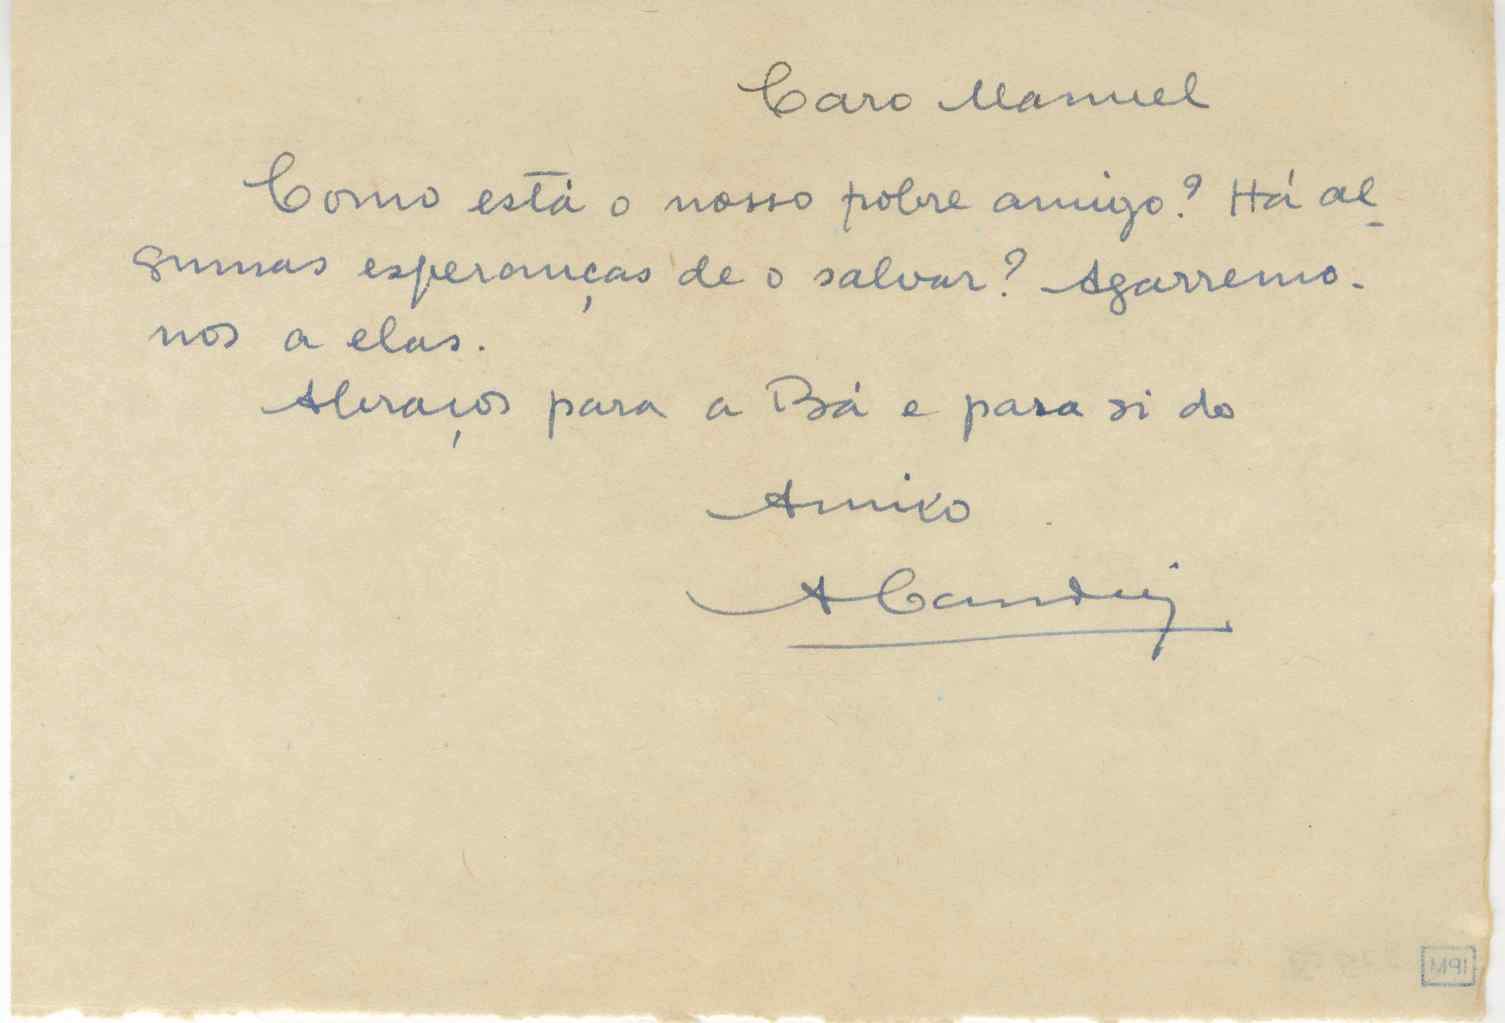 Caro Manuel
Como está o nosso pobre amigo? Há al-
gumas esperanças de o salvar? Agarremo-
nos a elas.
Abraços para a Bá e para si do
Amigo